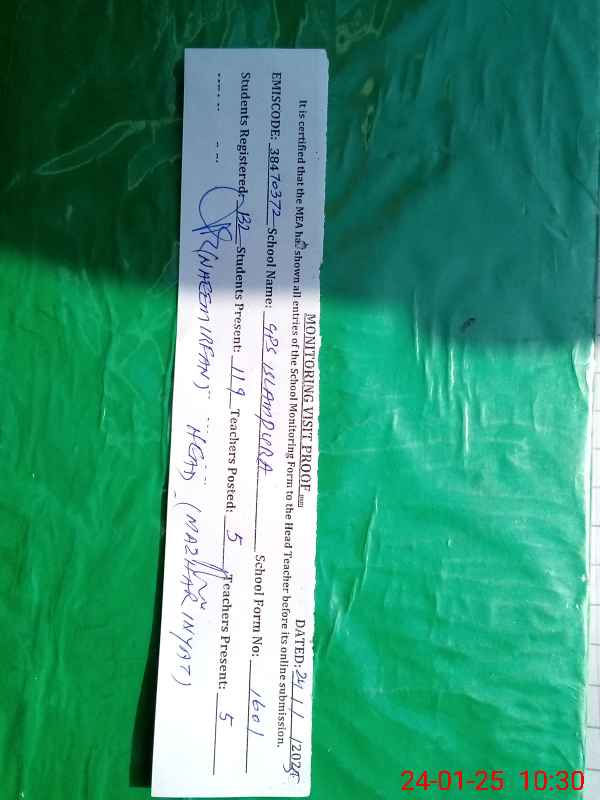 MONITORING VISIT PROOF DATED: 24/1/2025
It is certified that the MEA has shown all entries of the School Monitoring Form to the Head Teacher before its online submission.
EMISCODE: 38470372 School Name: GPS ISLAMPURA School Form No: 1601
Students Registered: 132 Students Present: 119 Teachers Posted: 5 Teachers Present: 5
(NAEEM IRFAN) HEAD - (MAZHAR INYAT)
24-01-25 10:30